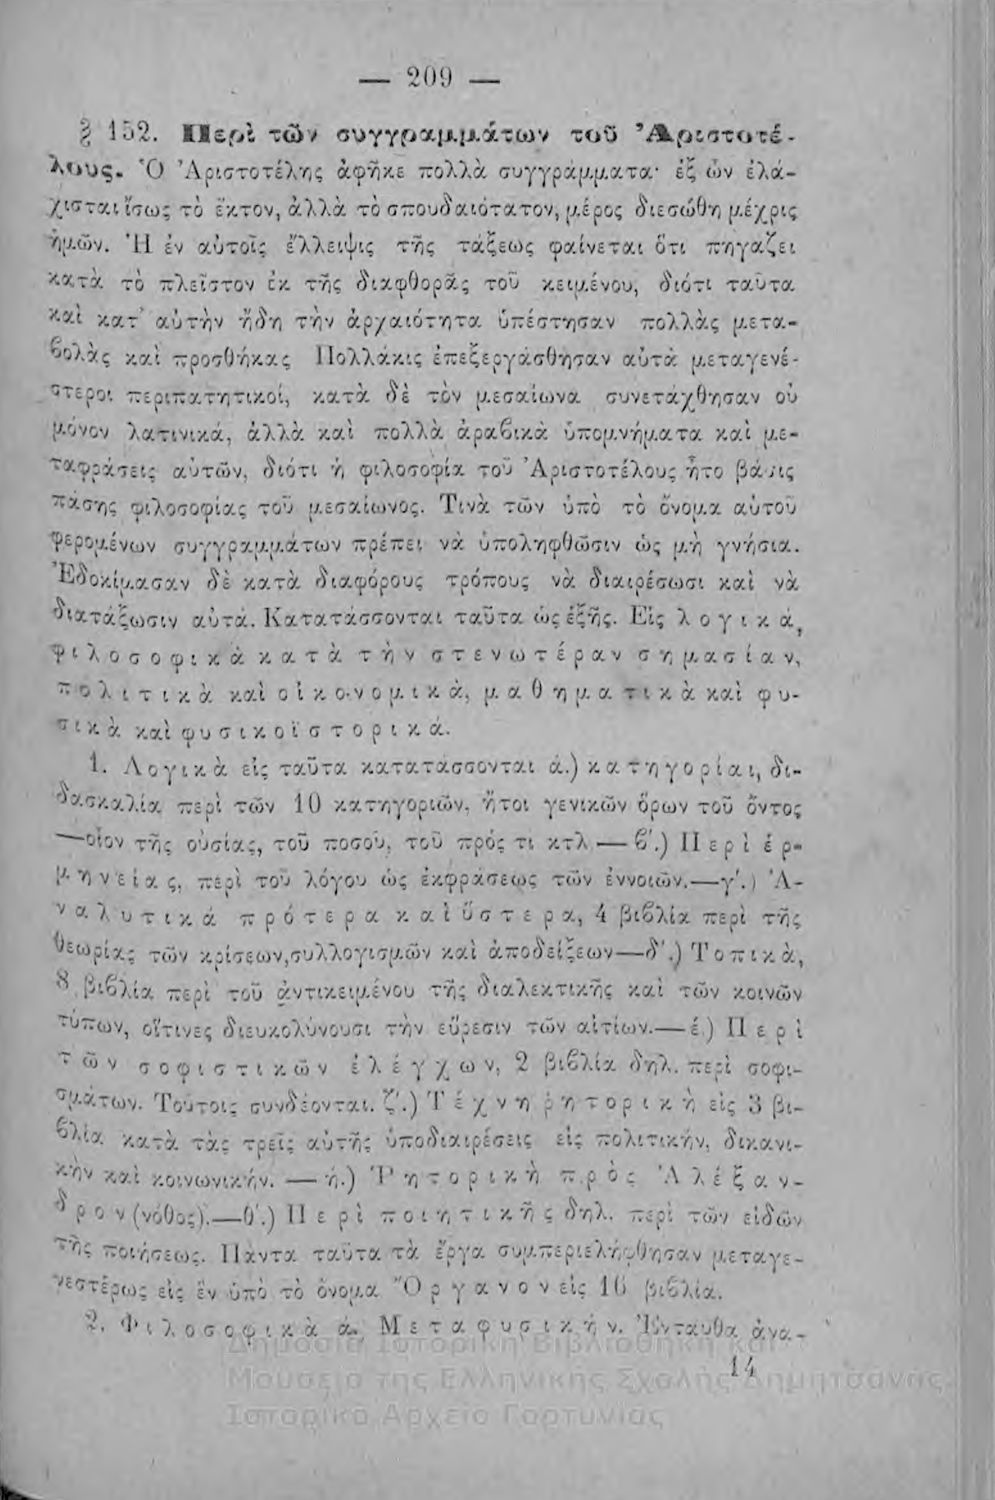 — 209 —
§ 152. Περὶ τῶν συγγραμμάτων τοῦ Ἀριστοτέ-
λους. Ὁ Ἀριστοτέλης ἀφῆκε πολλὰ συγγράμματα· ἐξ ὧν ἐλά-
χισται ἴσως τὸ ἕκτον, ἀλλὰ τὸ σπουδαιότατον, μέρος διεσώθη μέχρις
ἡμῶν. Ἡ ἐν αὐτοῖς ἔλλειψις τῆς τάξεως φαίνεται ὅτι πηγάζει
κατὰ τὸ πλεῖστον ἐκ τῆς διαφθορᾶς τοῦ κειμένου, διότι ταῦτα
καὶ κατ' αὐτὴν ἤδη τὴν ἀρχαιότητα ὑπέστησαν πολλὰς μετα-
βολὰς καὶ προσθήκας Πολλάκις ἐπεξεργάσθησαν αὐτὰ μεταγενέ-
στεροι περιπατητικοί, κατὰ δὲ τὸν μεσαίωνα συνετάχθησαν οὐ
μόνον λατινικά, ἀλλὰ καὶ πολλὰ ἀραβικὰ ὑπομνήματα καὶ με-
ταφράσεις αὐτῶν, διότι ἡ φιλοσοφία τοῦ Ἀριστοτέλους ἦτο βάσις
πάσης φιλοσοφίας τοῦ μεσαίωνος. Τινὰ τῶν ὑπὸ τὸ ὄνομα αὐτοῦ
φερομένων συγγραμμάτων πρέπει νὰ ὑποληφθῶσιν ὡς μὴ γνήσια.
Ἐδοκίμασαν δὲ κατὰ διαφόρους τρόπους νὰ διαιρέσωσι καὶ νὰ
διατάξωσιν αὐτά. Κατατάσσονται ταῦτα ὡς ἑξῆς. Εἰς λογικά,
φιλοσοφικὰ κατὰ τὴν στενωτέραν σημασίαν,
πολιτικὰ καὶ οἰκο-νομικά, μαθηματικὰ καὶ φυ-
σικὰ καὶ φυσικοϊστορικά.
1. Λογικὰ εἰς ταῦτα κατατάσσονται ά.) κατηγορίαι, δι-
δασκαλία περὶ τῶν 10 κατηγοριῶν, ἤτοι γενικῶν ὅρων τοῦ ὄντος
—οἷον τῆς οὐσίας, τοῦ ποσοῦ, τοῦ πρός τι κτλ — β'.) Περὶ ἑρ-
μηνείας, περὶ τοῦ λόγου ὡς ἐκφράσεως τῶν ἐννοιῶν.—γ'.) Ἀ-
ναλυτικά πρότερα καὶ ὕστερα, 4 βιβλία περὶ τῆς
θεωρίας τῶν κρίσεων,συλλογισμῶν καὶ ἀποδείξεων—δ'.) Τοπικὰ,
8 βιβλία περὶ τοῦ ἀντικειμένου τῆς διαλεκτικῆς καὶ τῶν κοινῶν
τύπων, οἵτινες διευκολύνουσι τὴν εὕρεσιν τῶν αἰτίων.—έ.) Περὶ
τῶν σοφιστικῶν ἐλέγχων, 2 βιβλία δηλ. περὶ σοφι-
σμάτων. Τούτοις συνδέονται. ζ'.) Τέχνη ῥητορικὴ εἰς 3 βι-
βλία κατὰ τὰς τρεῖς αὐτῆς ὑποδιαιρέσεις εἰς πολιτικήν, δικανι-
κὴν καὶ κοινωνικήν. — ή.) Ῥητορικὴ πρὸς Ἀλέξαν-
δρον (νόθος).—θ'.) Περὶ ποιητικῆς δηλ. περὶ τῶν εἰδῶν
τῆς ποιήσεως. Πάντα ταῦτα τὰ ἔργα συμπεριελήφθησαν μεταγε-
νεστέρως εἰς ἓν ὑπὸ τὸ ὄνομα Ὄργανον εἰς 16 βιβλία.
2. Φιλοσοφικὰ ά. Μεταφυσικήν. Ἐνταῦθα ἀνα-
14
Δημόσια Ιστορική Βιβλιοθήκη και
Μουσείο της Ελληνικής Σχολής Δημητσάνας
Ιστορικό Αρχείο Γορτυνίας